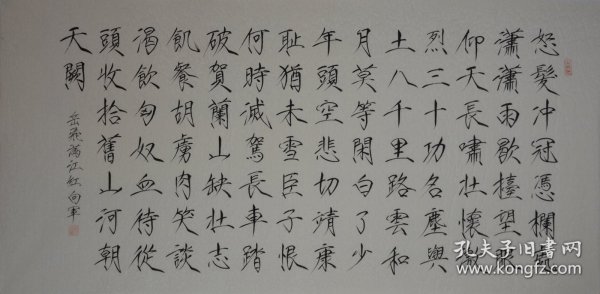 怒髮冲冠憑欄處
瀟瀟雨歇擡望眼
仰天長嘯壯懷激
烈三十功名塵與
土八千里路雲和
月莫等閑白了少
年頭空悲切靖康
耻猶未雪臣子恨
何時滅駕長車踏
破賀蘭山缺壯志
飢餐胡虜肉笑談
渴飲匈奴血待從
頭收拾舊山河朝
天闕
岳飛滿江紅向軍
孔夫子旧書网
www.kongfz.com